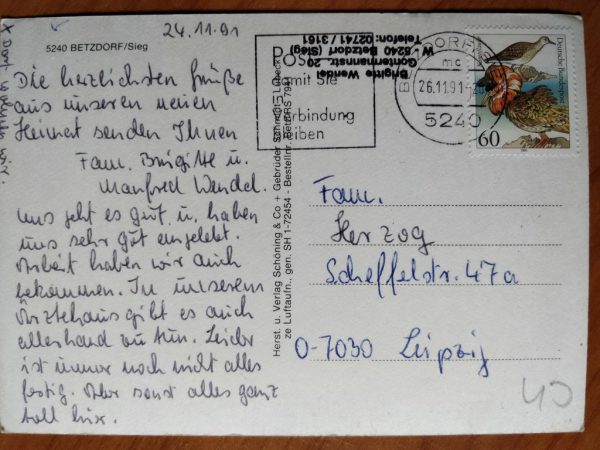 24.11.91
5240 BETZDORF/Sieg
x Dort wohnen wir.
Die herzlichsten Grüße
aus unserer neuen
Heimat senden Ihnen
Fam. Brigitte u.
Manfred Wendel.
Uns geht es gut u. haben
uns sehr gut eingelebt.
Arbeit haben wir auch
bekommen. In unserem
Ärztehaus gibt es auch
allerhand zu tun. Leider
ist immer noch nicht alles
fertig. Aber sonst alles ganz
toll hier.
Herst. u. Verlag Schöning & Co + Gebrüder Schmidt, Lübeck
ze Luftaufn., gen. SH 1-72454 - Bestellnr.
Brigitte Wendel
Gontermannstr. 20
W - 5240 Betzdorf (Sieg)
Telefon: 02741 / 3161
Post
damit Sie
in
Verbindung
bleiben
BETZDORF
mc
26.11.91
5240
Deutsche Bundespost
60
Fam.
Herzog
Scheffelstr. 47a
O-7030 Leipzig